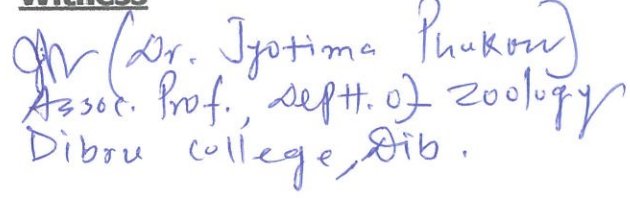 Witness
(Dr. Jyotima Phukon)
Assoc. Prof., Deptt. of Zoology
Dibru college, Dib.